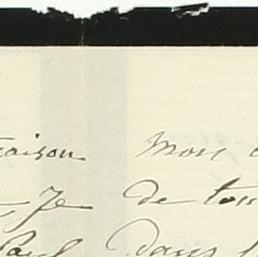 raison Mon
Je de tou
Paul Dans